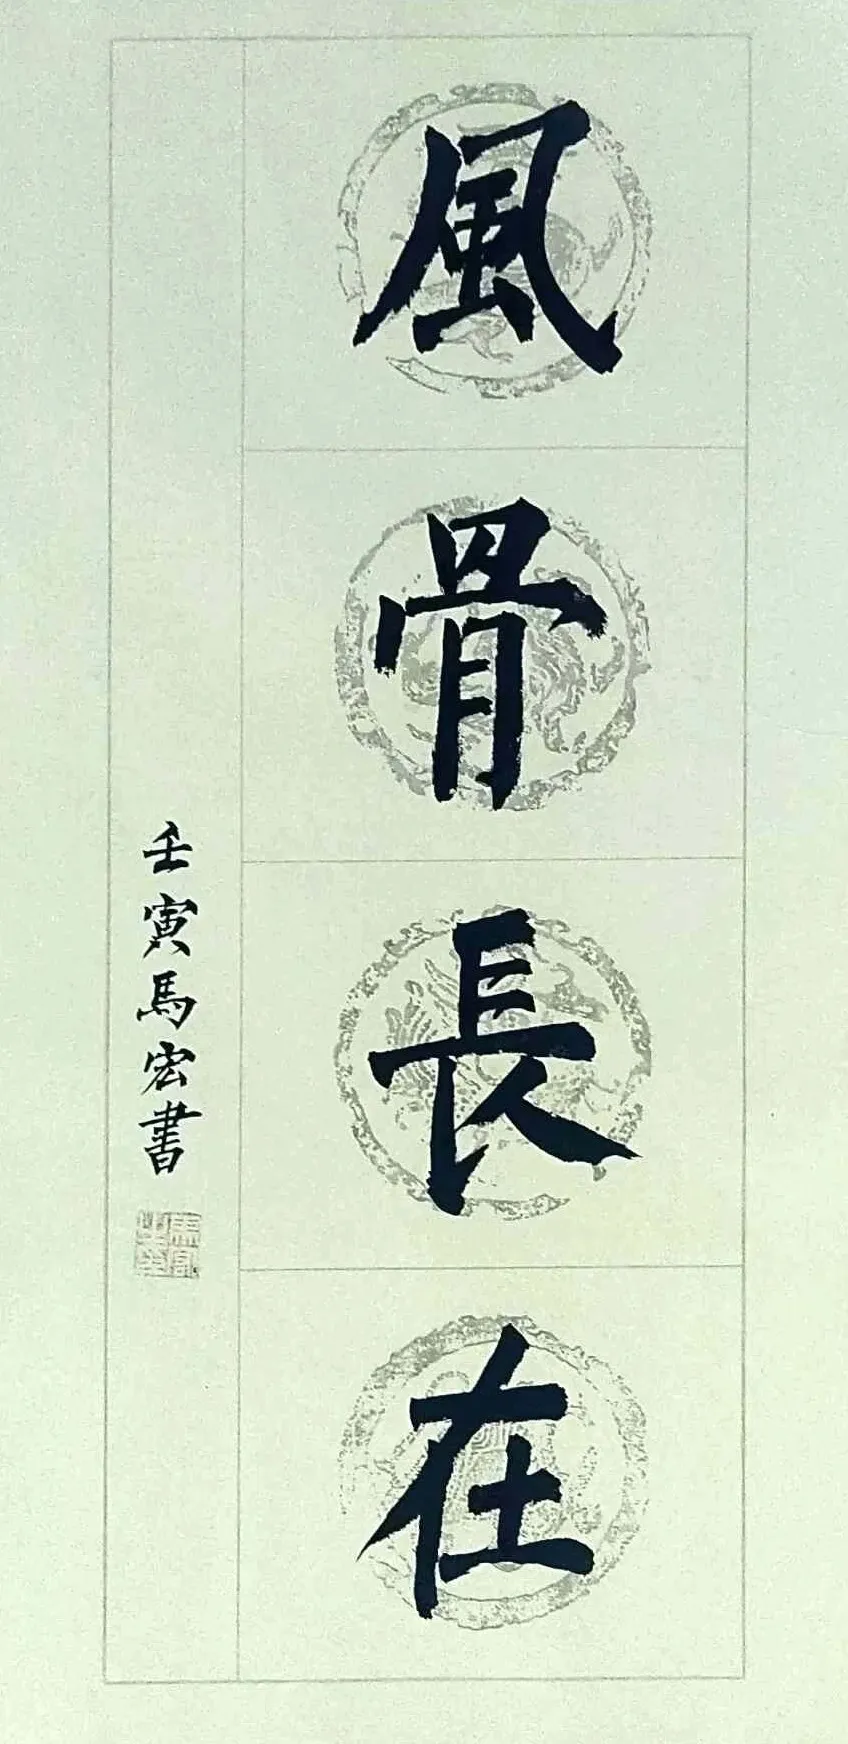 風骨長在
壬寅馬宏書